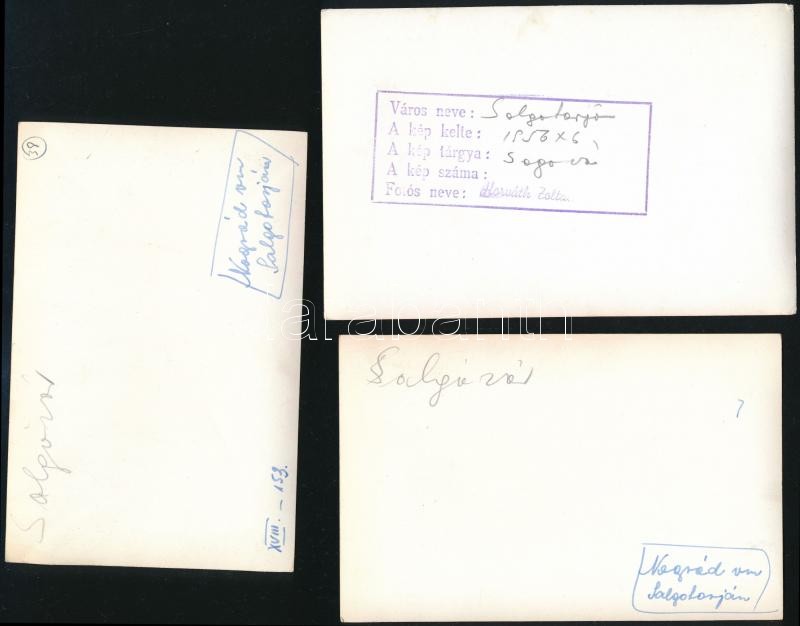 39
Nográd vm
Salgótarján
Salgóvár
XVIII. – 153.
Város neve: Salgotarjá
A kép kelte: 1956 X 6
A kép tárgya: Sagová
A kép száma:
Fotós neve: Horváth Zoltán
Salgóvár
?
Nográd vm
Salgotarján
darabanth